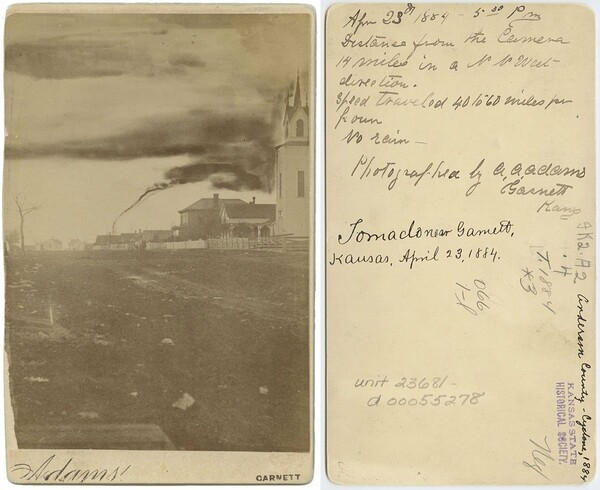 Adams
GARNETT
Apr 23rd 1884 - 5 30 Pm
Distance from the Camera
14 miles in a N N West
direction.
Speed traveled 40 to 60 miles per
hour
No rain —
Photographed by A. A. Adams
Garnett
Kans
Tornado near Garnett,
Kansas, April 23, 1884.
FK2.A2
.4
T. 1884
*3
066
1-l
Anderson County - Cyclone, 1884
KANSAS STATE
HISTORICAL SOCIETY.
unit 23681-
d 00055278